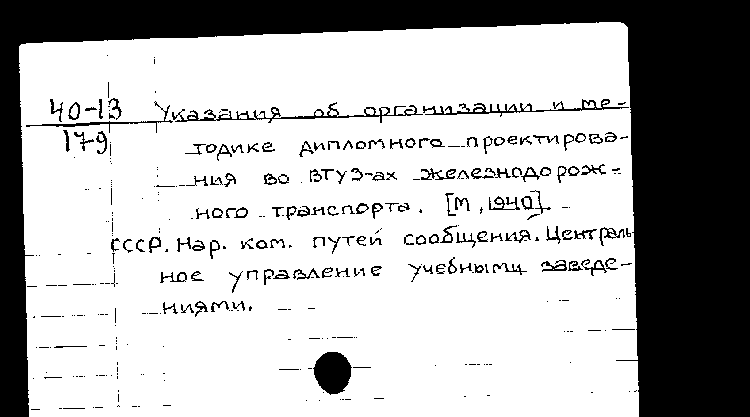 40-13 Указания об организации и ме-
179 тодике дипломного проектирова-
ния во ВТУЗ-ах железнодорож-
ного транспорта. [М, 1940].
СССР. Нар. ком. путей сообщения. Централь
ное управление учебными заведе-
ниями.